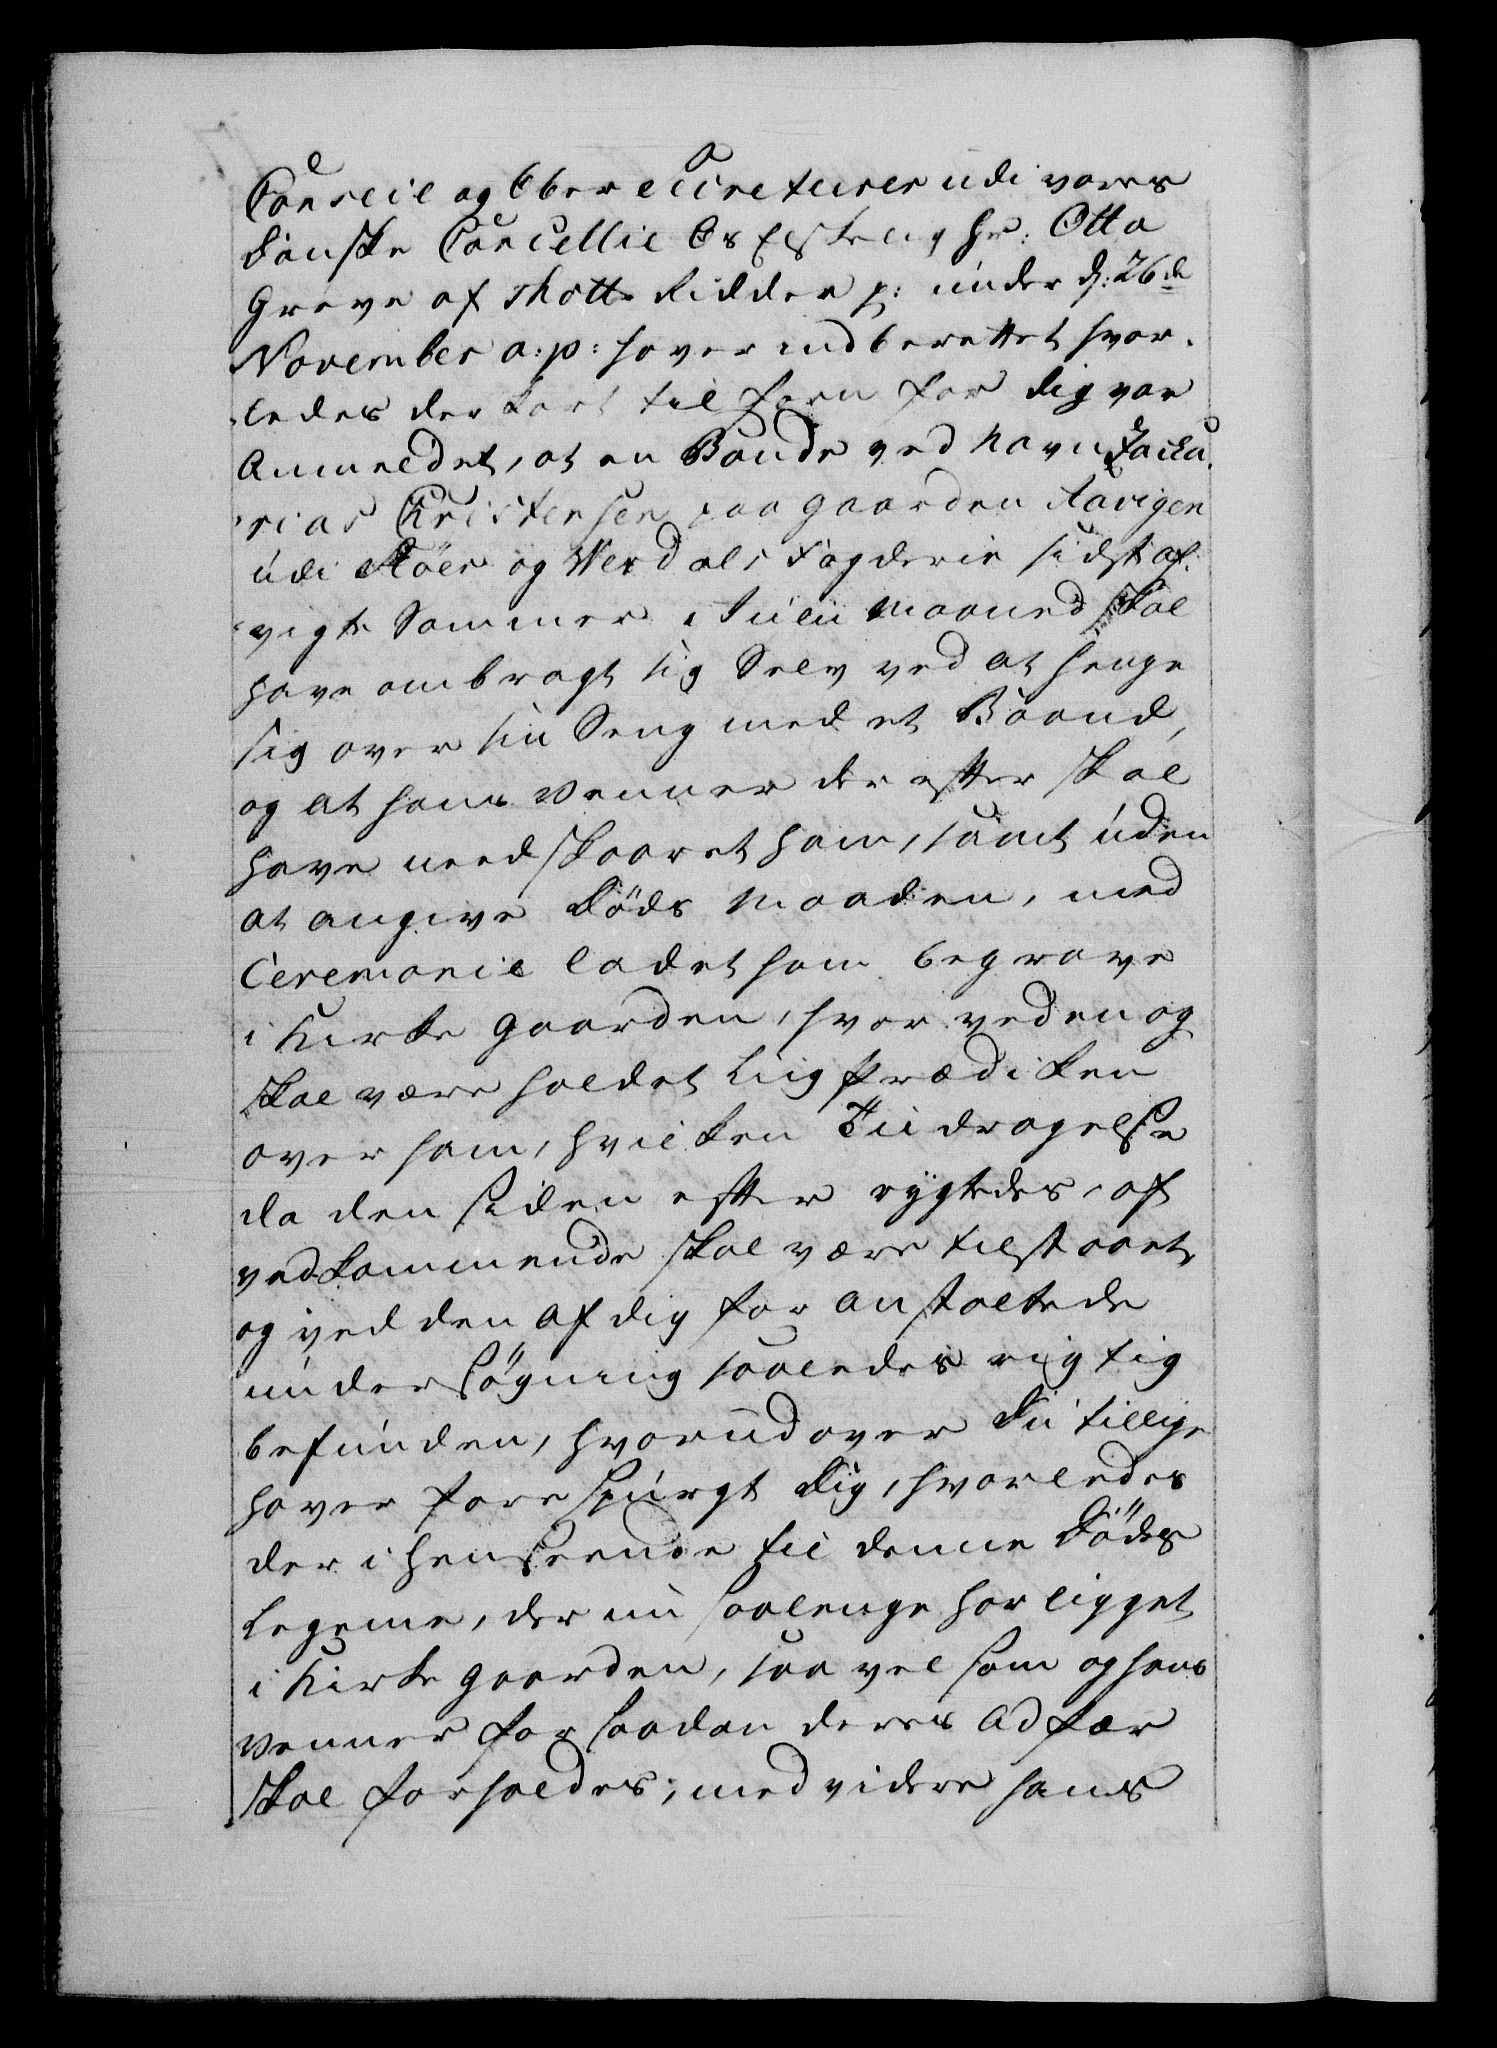 Conseil og Ober Secreterer udi vores
danske Cancellie Os Elskelig Hr: Otto
Greve af Thott Ridder p: under d: 26de
November a: p: haver indberettet hvor-
ledes der kort tilforn for dig var
Anmeldet, at en Bonde ved Navn Zacha-
rias Christensen paa Gaarden
udi Støer og Werdals Fogderie sidst af-
vigte Sommer i Julii Maaned skal
have ombragt sig Selv ved at henge
sig over sin Seng med et Baand,
og at hans Venner der efter skal
have needskaaret ham, samt uden
at angive Døds Maaden, med
Ceremonie ladet ham begrave
i Kirke Gaarden, hvor ved en og
skal være holdet Liigprædiken
over ham, hvilken Tildragelse
da den siden efter rygtedes, af
vedkommende skal være tilstaaet
og ved den af dig for anstaltede
undersøgning saaledes rigtig
befunden, hvorudover Du tillige
haver forespurgt Dig, hvorledes
der i henseende til denne Dødes
Legeme, der nu saalenge har ligget
i Kirke Gaarden, saa vel som og hans
Venner for saadan deres Adfær
skal forholdes; med videre hans